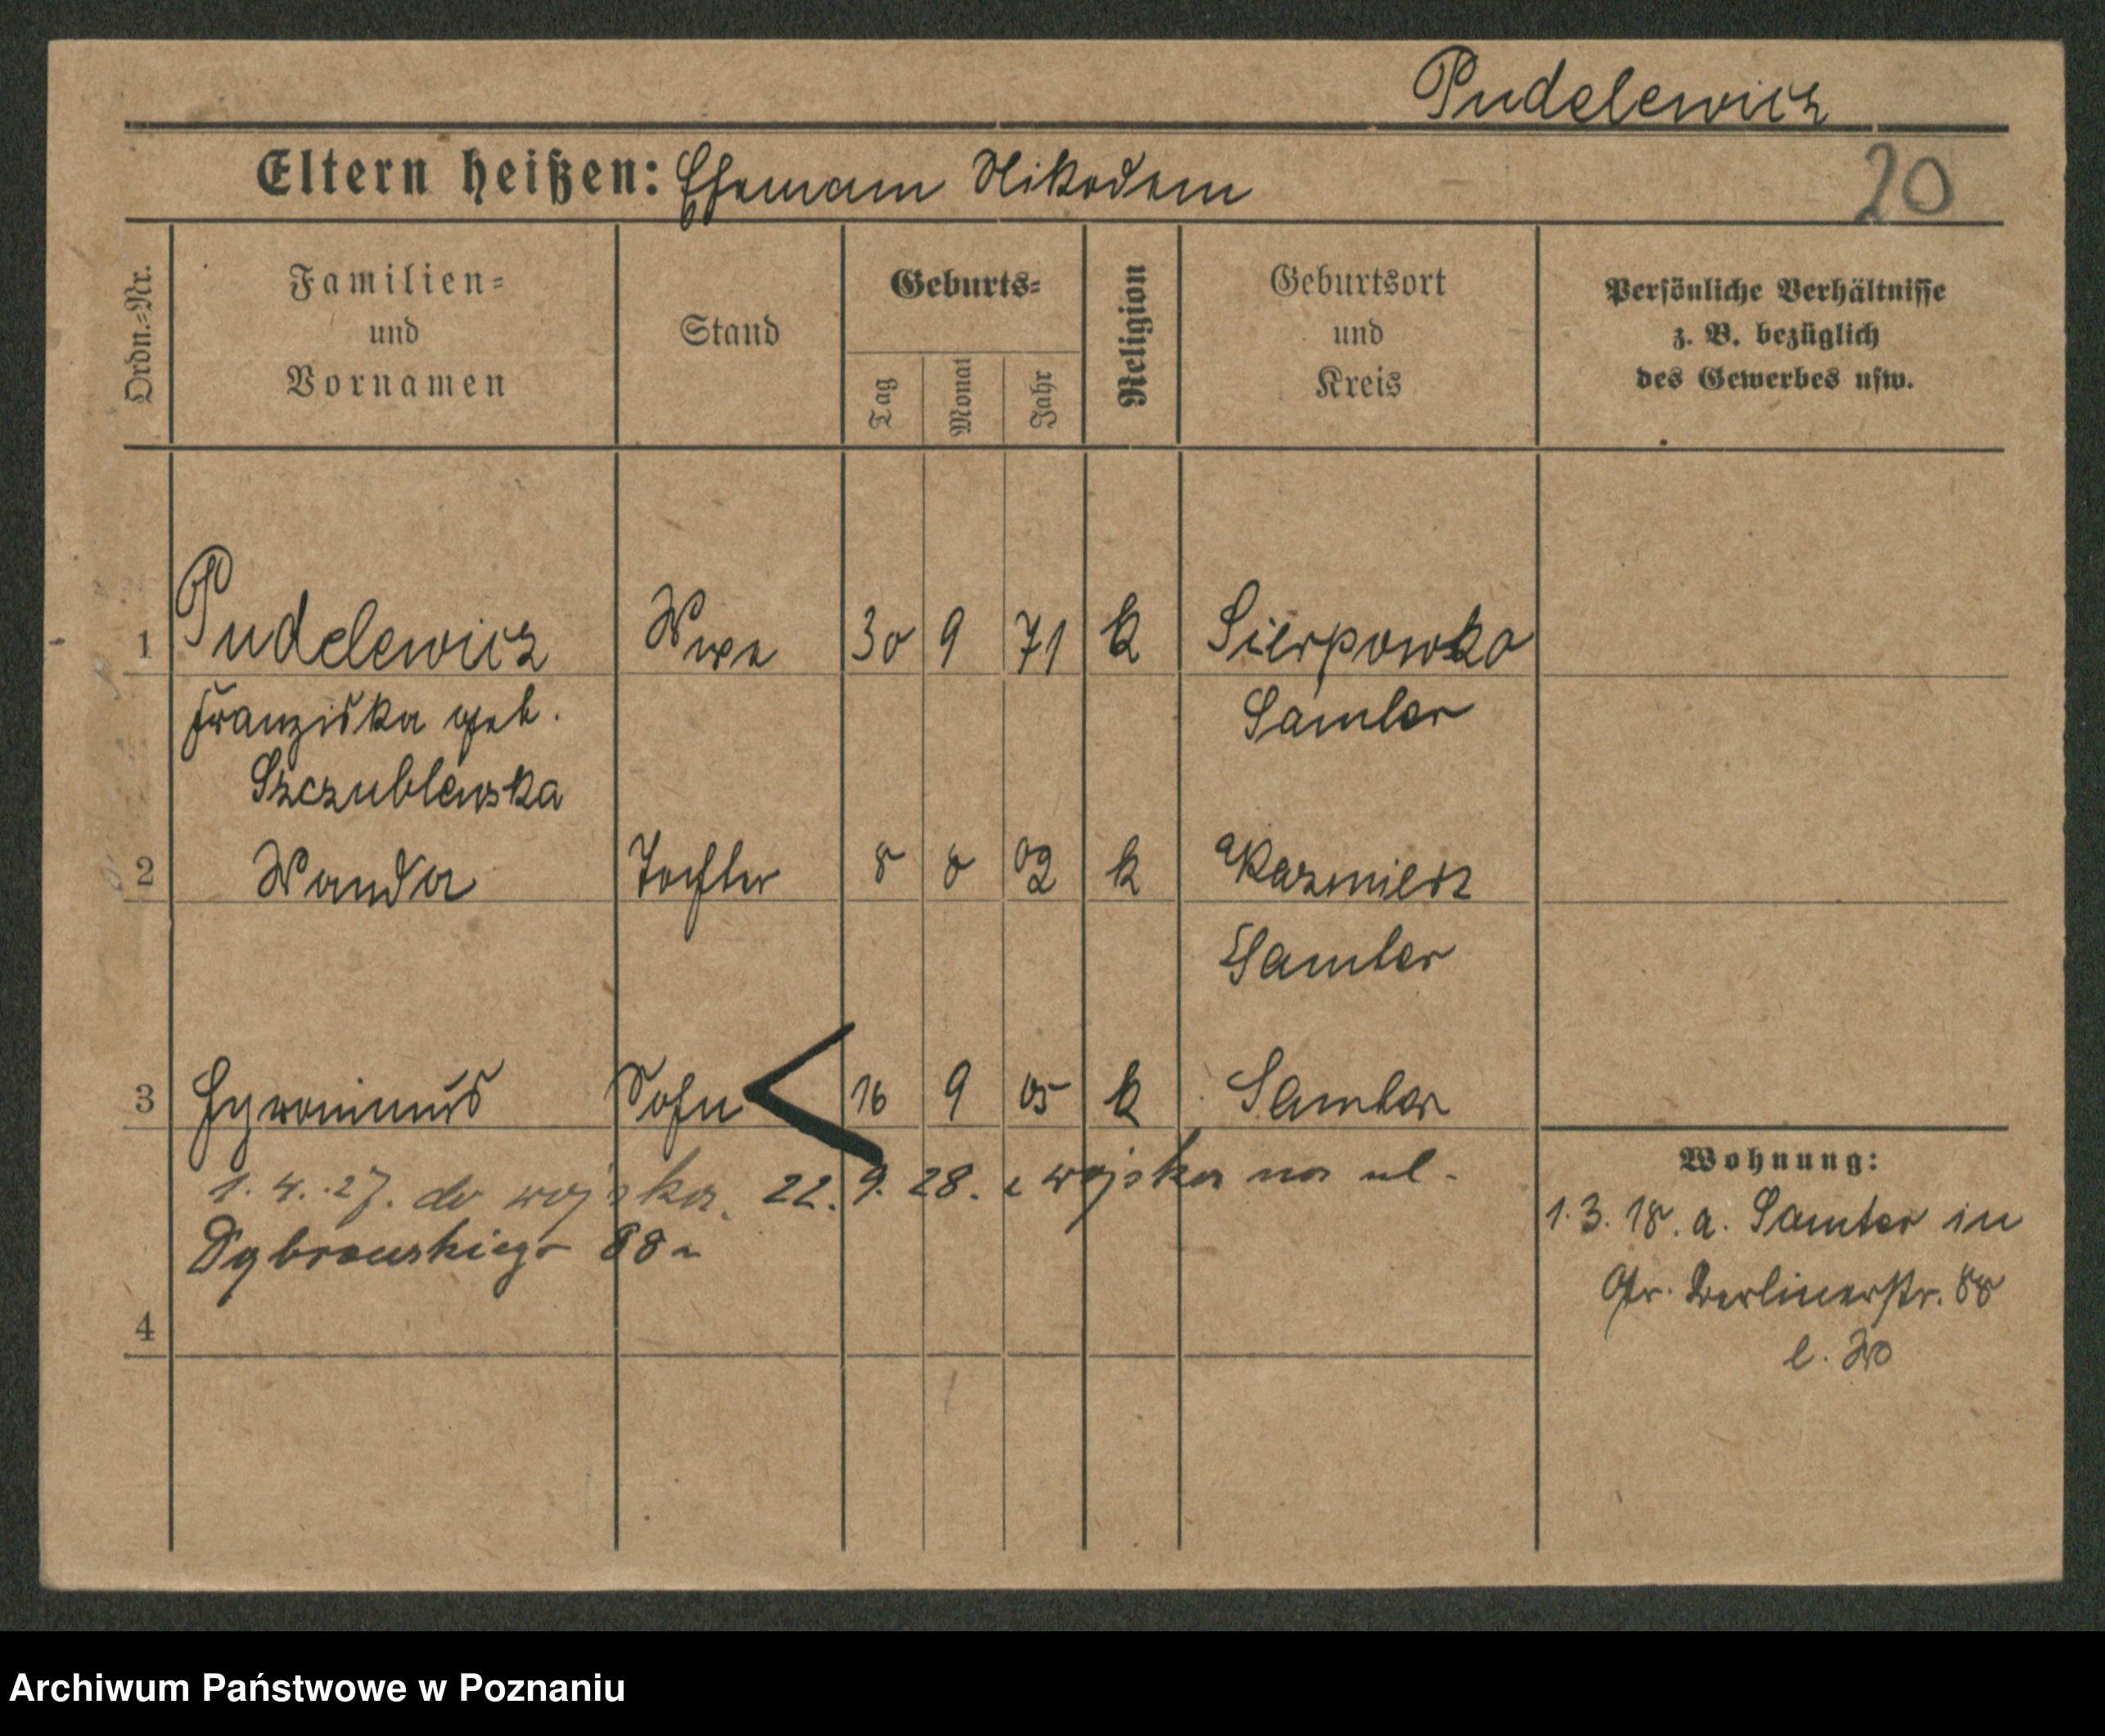 Pudelewicz
Eltern heißen: Ehemann Nikodem
20
Ordn.-Nr.
Familien-
und
Vornamen
Stand
Geburts-
Tag
Monat
Jahr
Religion
Geburtsort
und
Kreis
Persönliche Verhältnisse
z. B. bezüglich
des Gewerbes usw.
1 Pudelewicz Wwe 30 9 71 k Sierpowko
Franziska geb. Samter
Szczublewska
2 Wanda Tochter 8 8 02 k Kazmierz
Samter
3 Hyronimus Sohn 16 9 05 k Samter
1.4.27. do wojska. 22.9.28. z wojska na ul.
Dąbrowskiego 88
4
Wohnung:
1.3.18. a. Samter in
Gr. Berlinerstr. 88
Archiwum Państwowe w Poznaniu